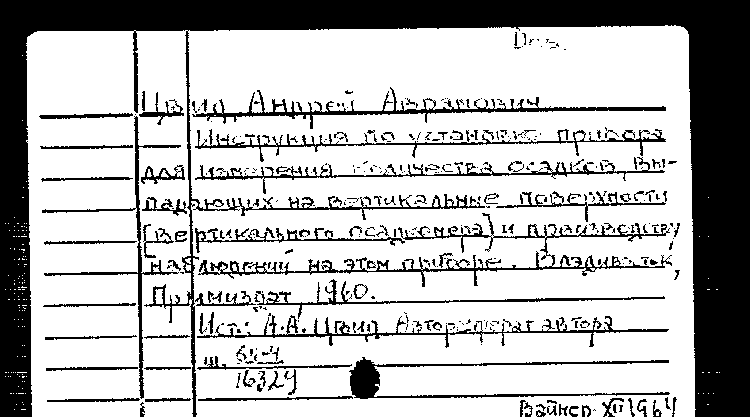 Цвид, Андрей Аврамович
Инструкция по установке прибора
для измерения количества осадков, вы-
падающих на вертикальные поверхности
[вертикального осадкомера] и производству
наблюдений на этом приборе. Владивосток,
Примиздат, 1960.
Ист.: А.А. Цвид Автореферат автора
ш.
16329
Вайнер XII 1964